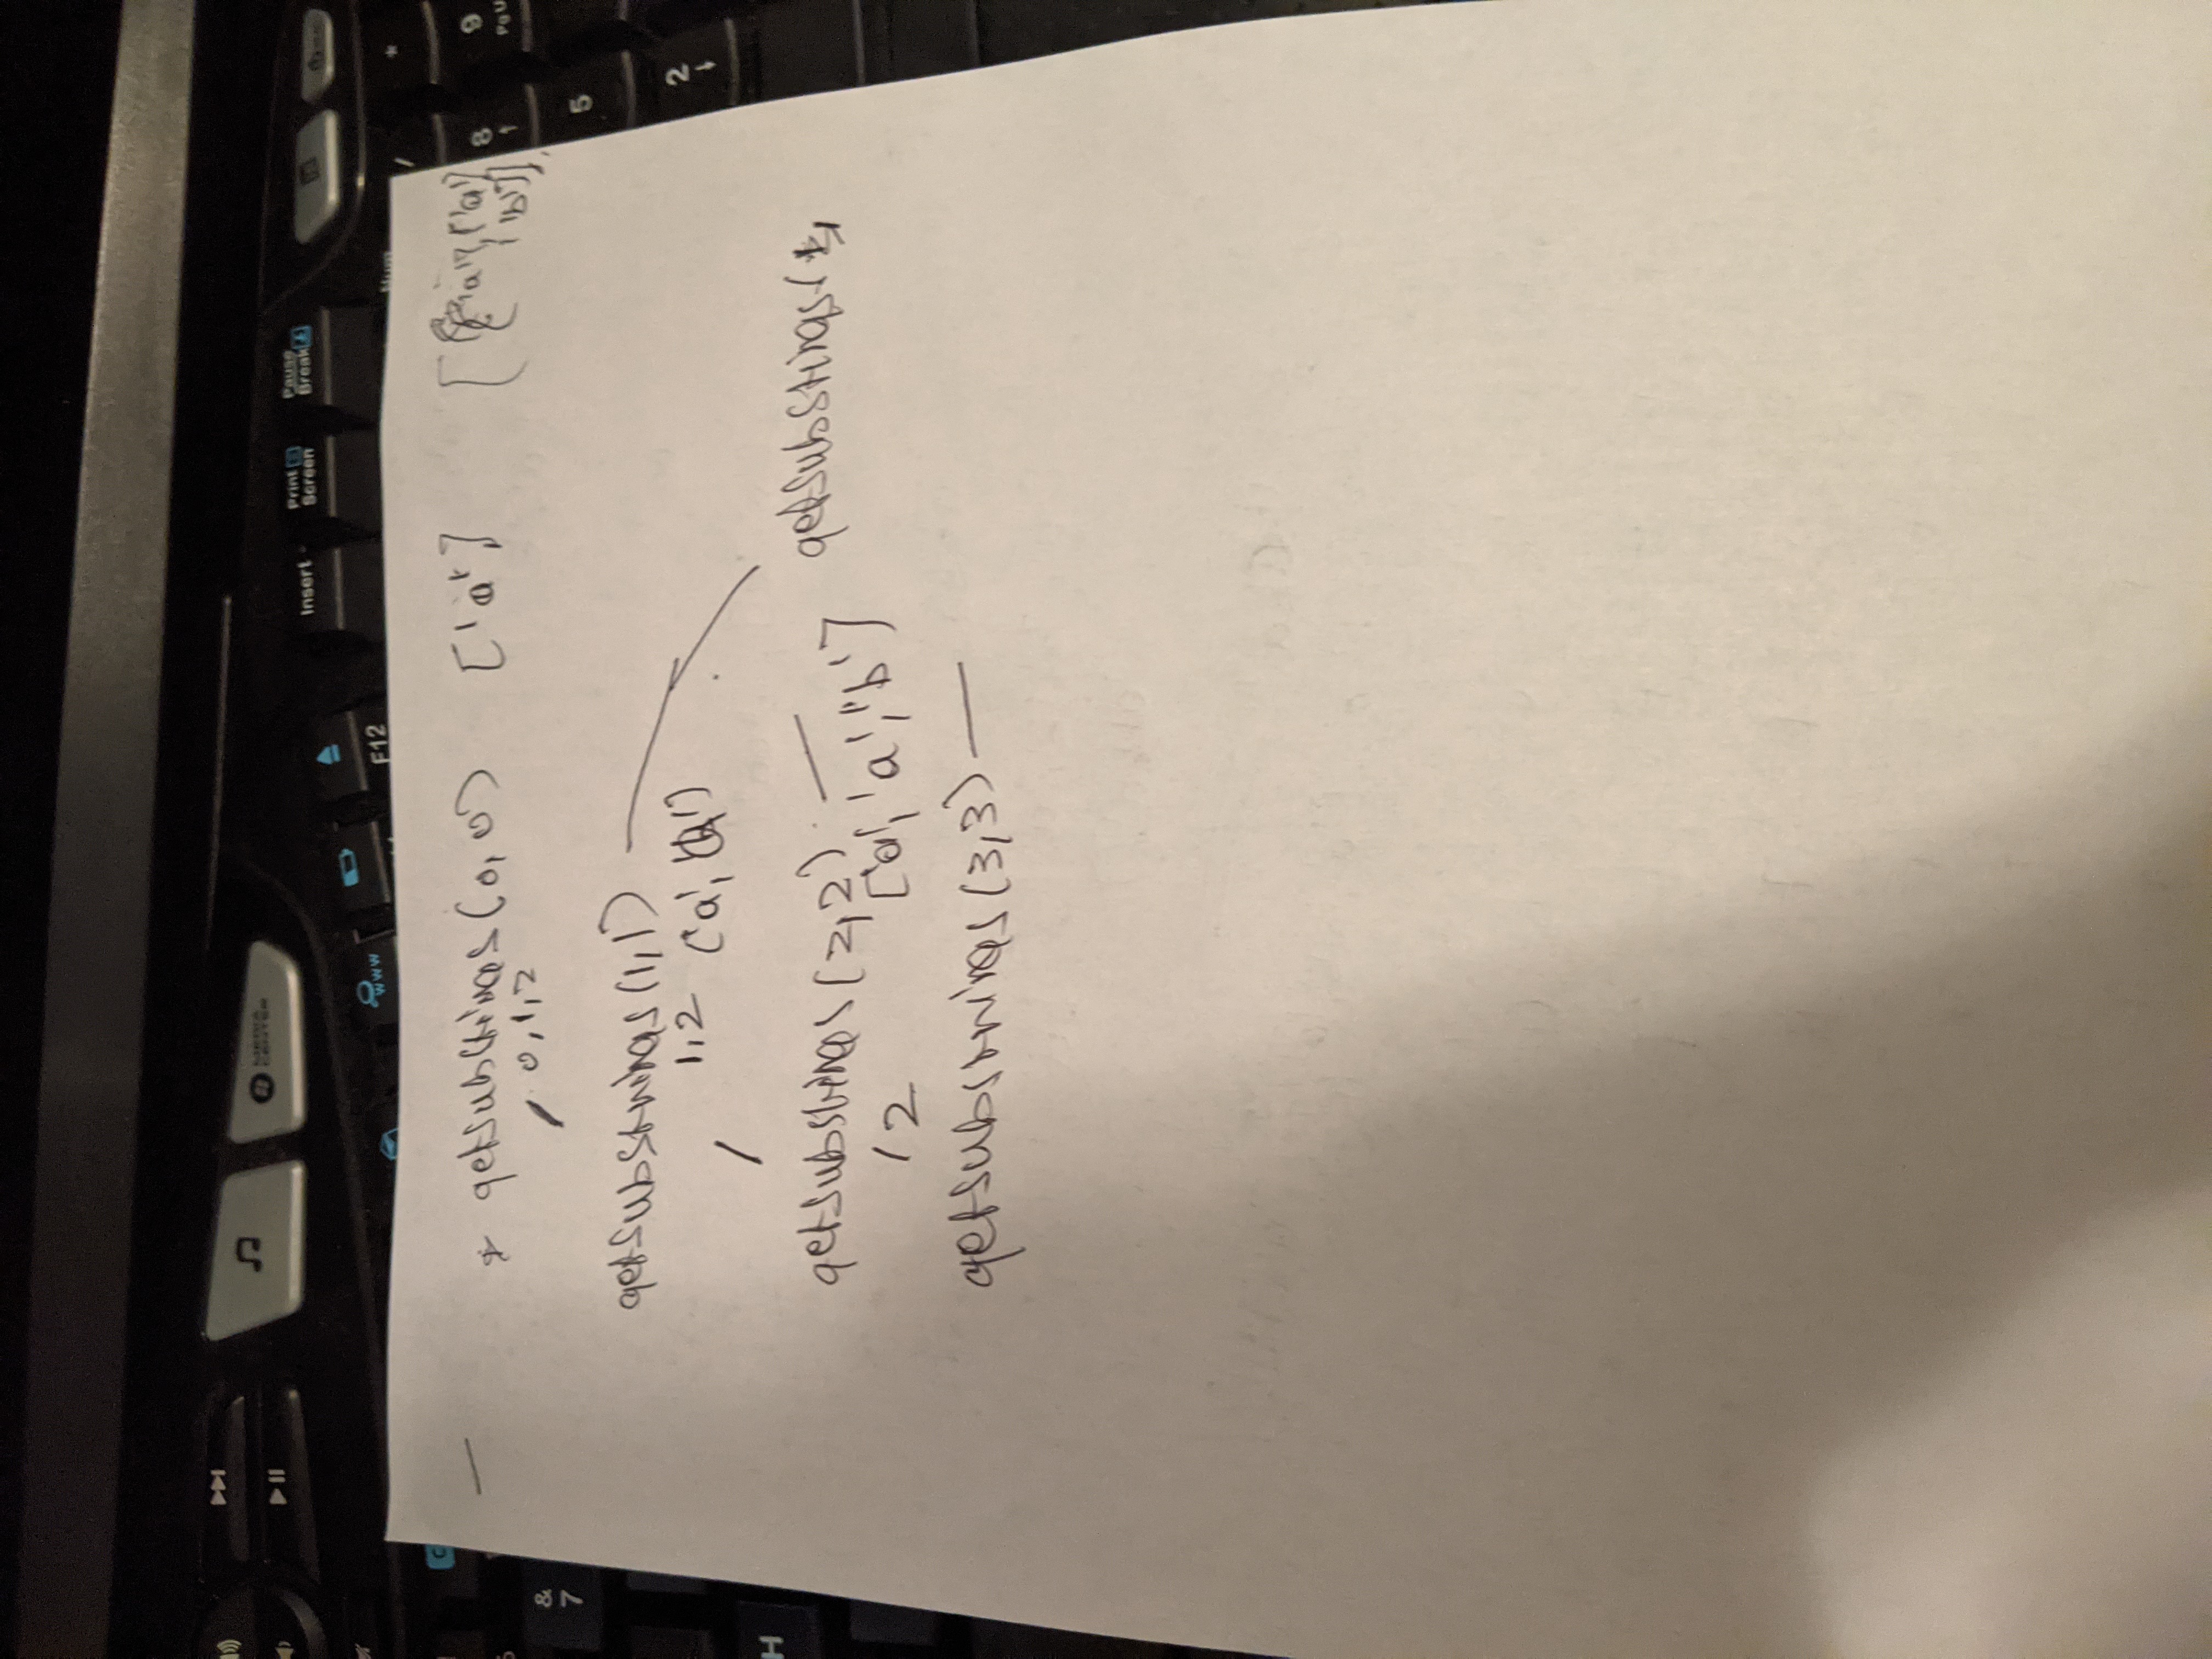 MEDIA CENTER
Insert
Print Screen
Pause Break
www
F12
Num
/
*
& 7
8
9
PgU
5
2
H
C
* getsubstrings(0,0) ['a']
0,1,2
'a'], ['a'
'b']],
getsubstrings(1,1)
1,2 ['a',
getsubstrings(2,2)
2 ['a','a','b']
getsubstrings(
getsubstrings(3,3)